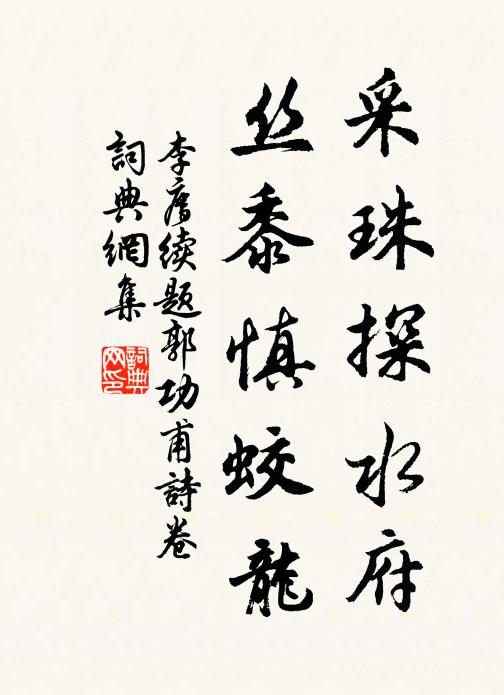 采珠探水府
丝黍慎蛟龍
李廌续题郭功甫詩卷
詞典網集
詞典网印